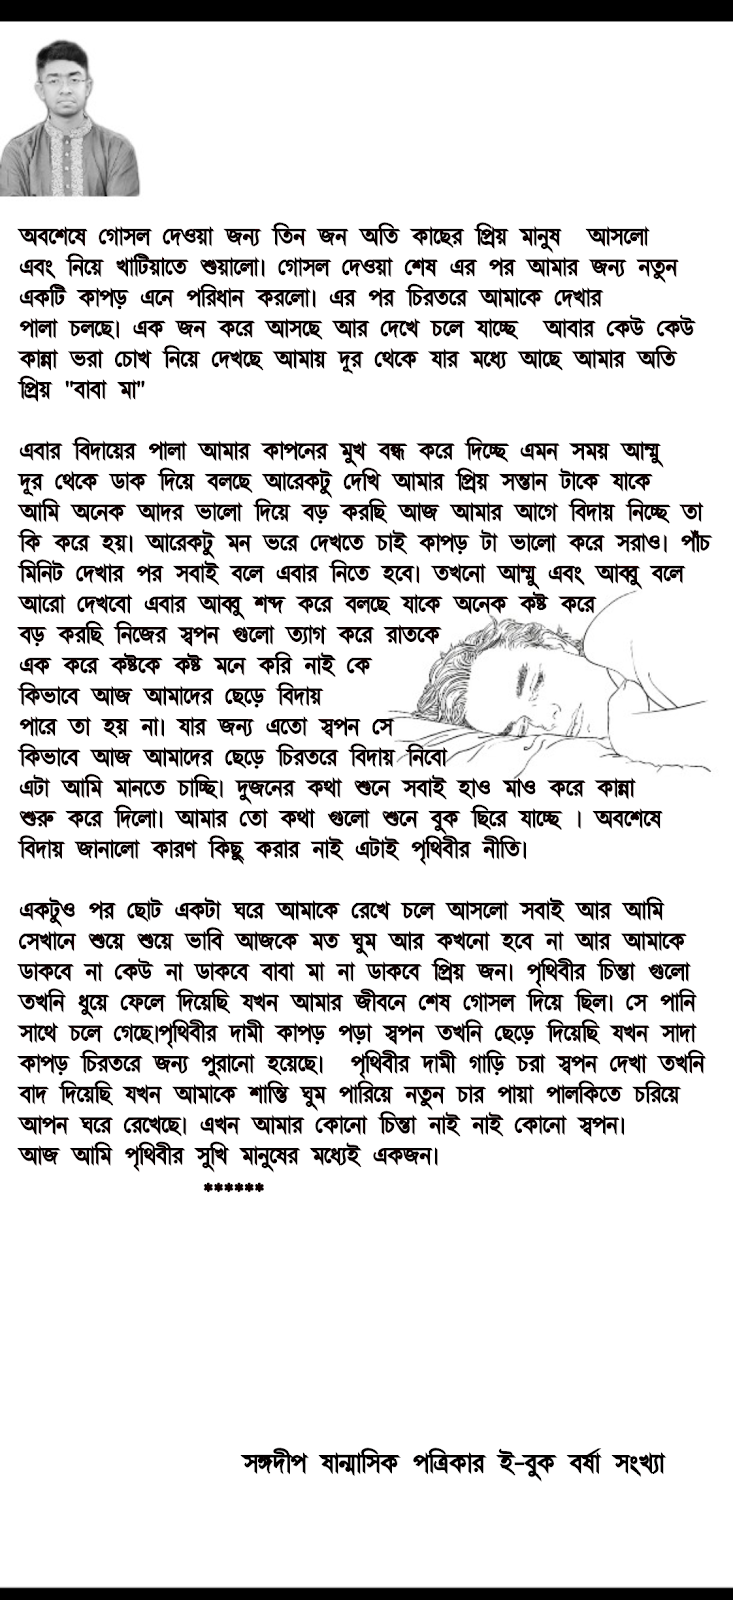 অবশেষে গোসল দেওয়া জন্য তিন জন অতি কাছের প্রিয় মানুষ আসলো
এবং নিয়ে খাটিয়াতে শুয়ালো। গোসল দেওয়া শেষ এর পর আমার জন্য নতুন
একটি কাপড় এনে পরিধান করলো। এর পর চিরতরে আমাকে দেখার
পালা চলছে। এক জন করে আসছে আর দেখে চলে যাচ্ছে আবার কেউ কেউ
কান্না ভরা চোখ নিয়ে দেখছে আমায় দূর থেকে যার মধ্যে আছে আমার অতি
প্রিয় "বাবা মা"
এবার বিদায়ের পালা আমার কাপনের মুখ বন্ধ করে দিচ্ছে এমন সময় আম্মু
দূর থেকে ডাক দিয়ে বলছে আরেকটু দেখি আমার প্রিয় সন্তান টাকে যাকে
আমি অনেক আদর ভালো দিয়ে বড় করছি আজ আমার আগে বিদায় নিচ্ছে তা
কি করে হয়। আরেকটু মন ভরে দেখতে চাই কাপড় টা ভালো করে সরাও। পাঁচ
মিনিট দেখার পর সবাই বলে এবার নিতে হবে। তখনো আম্মু এবং আব্বু বলে
আরো দেখবো এবার আব্বু শব্দ করে বলছে যাকে অনেক কষ্ট করে
বড় করছি নিজের স্বপন গুলো ত্যাগ করে রাতকে
এক করে কষ্টকে কষ্ট মনে করি নাই কে
কিভাবে আজ আমাদের ছেড়ে বিদায়
পারে তা হয় না। যার জন্য এতো স্বপন সে
কিভাবে আজ আমাদের ছেড়ে চিরতরে বিদায় নিবো
এটা আমি মানতে চাচ্ছি। দুজনের কথা শুনে সবাই হাও মাও করে কান্না
শুরু করে দিলো। আমার তো কথা গুলো শুনে বুক ছিরে যাচ্ছে । অবশেষে
বিদায় জানালো কারণ কিছু করার নাই এটাই পৃথিবীর নীতি।
একটুও পর ছোট একটা ঘরে আমাকে রেখে চলে আসলো সবাই আর আমি
সেখানে শুয়ে শুয়ে ভাবি আজকে মত ঘুম আর কখনো হবে না আর আমাকে
ডাকবে না কেউ না ডাকবে বাবা মা না ডাকবে প্রিয় জন। পৃথিবীর চিন্তা গুলো
তখনি ধুয়ে ফেলে দিয়েছি যখন আমার জীবনে শেষ গোসল দিয়ে ছিল। সে পানি
সাথে চলে গেছে।পৃথিবীর দামী কাপড় পড়া স্বপন তখনি ছেড়ে দিয়েছি যখন সাদা
কাপড় চিরতরে জন্য পুরানো হয়েছে। পৃথিবীর দামী গাড়ি চরা স্বপন দেখা তখনি
বাদ দিয়েছি যখন আমাকে শান্তি ঘুম পারিয়ে নতুন চার পায়া পালকিতে চরিয়ে
আপন ঘরে রেখেছে। এখন আমার কোনো চিন্তা নাই নাই কোনো স্বপন।
আজ আমি পৃথিবীর সুখি মানুষের মধ্যেই একজন।
******
সঙ্গদীপ ষান্মাসিক পত্রিকার ই-বুক বর্ষা সংখ্যা